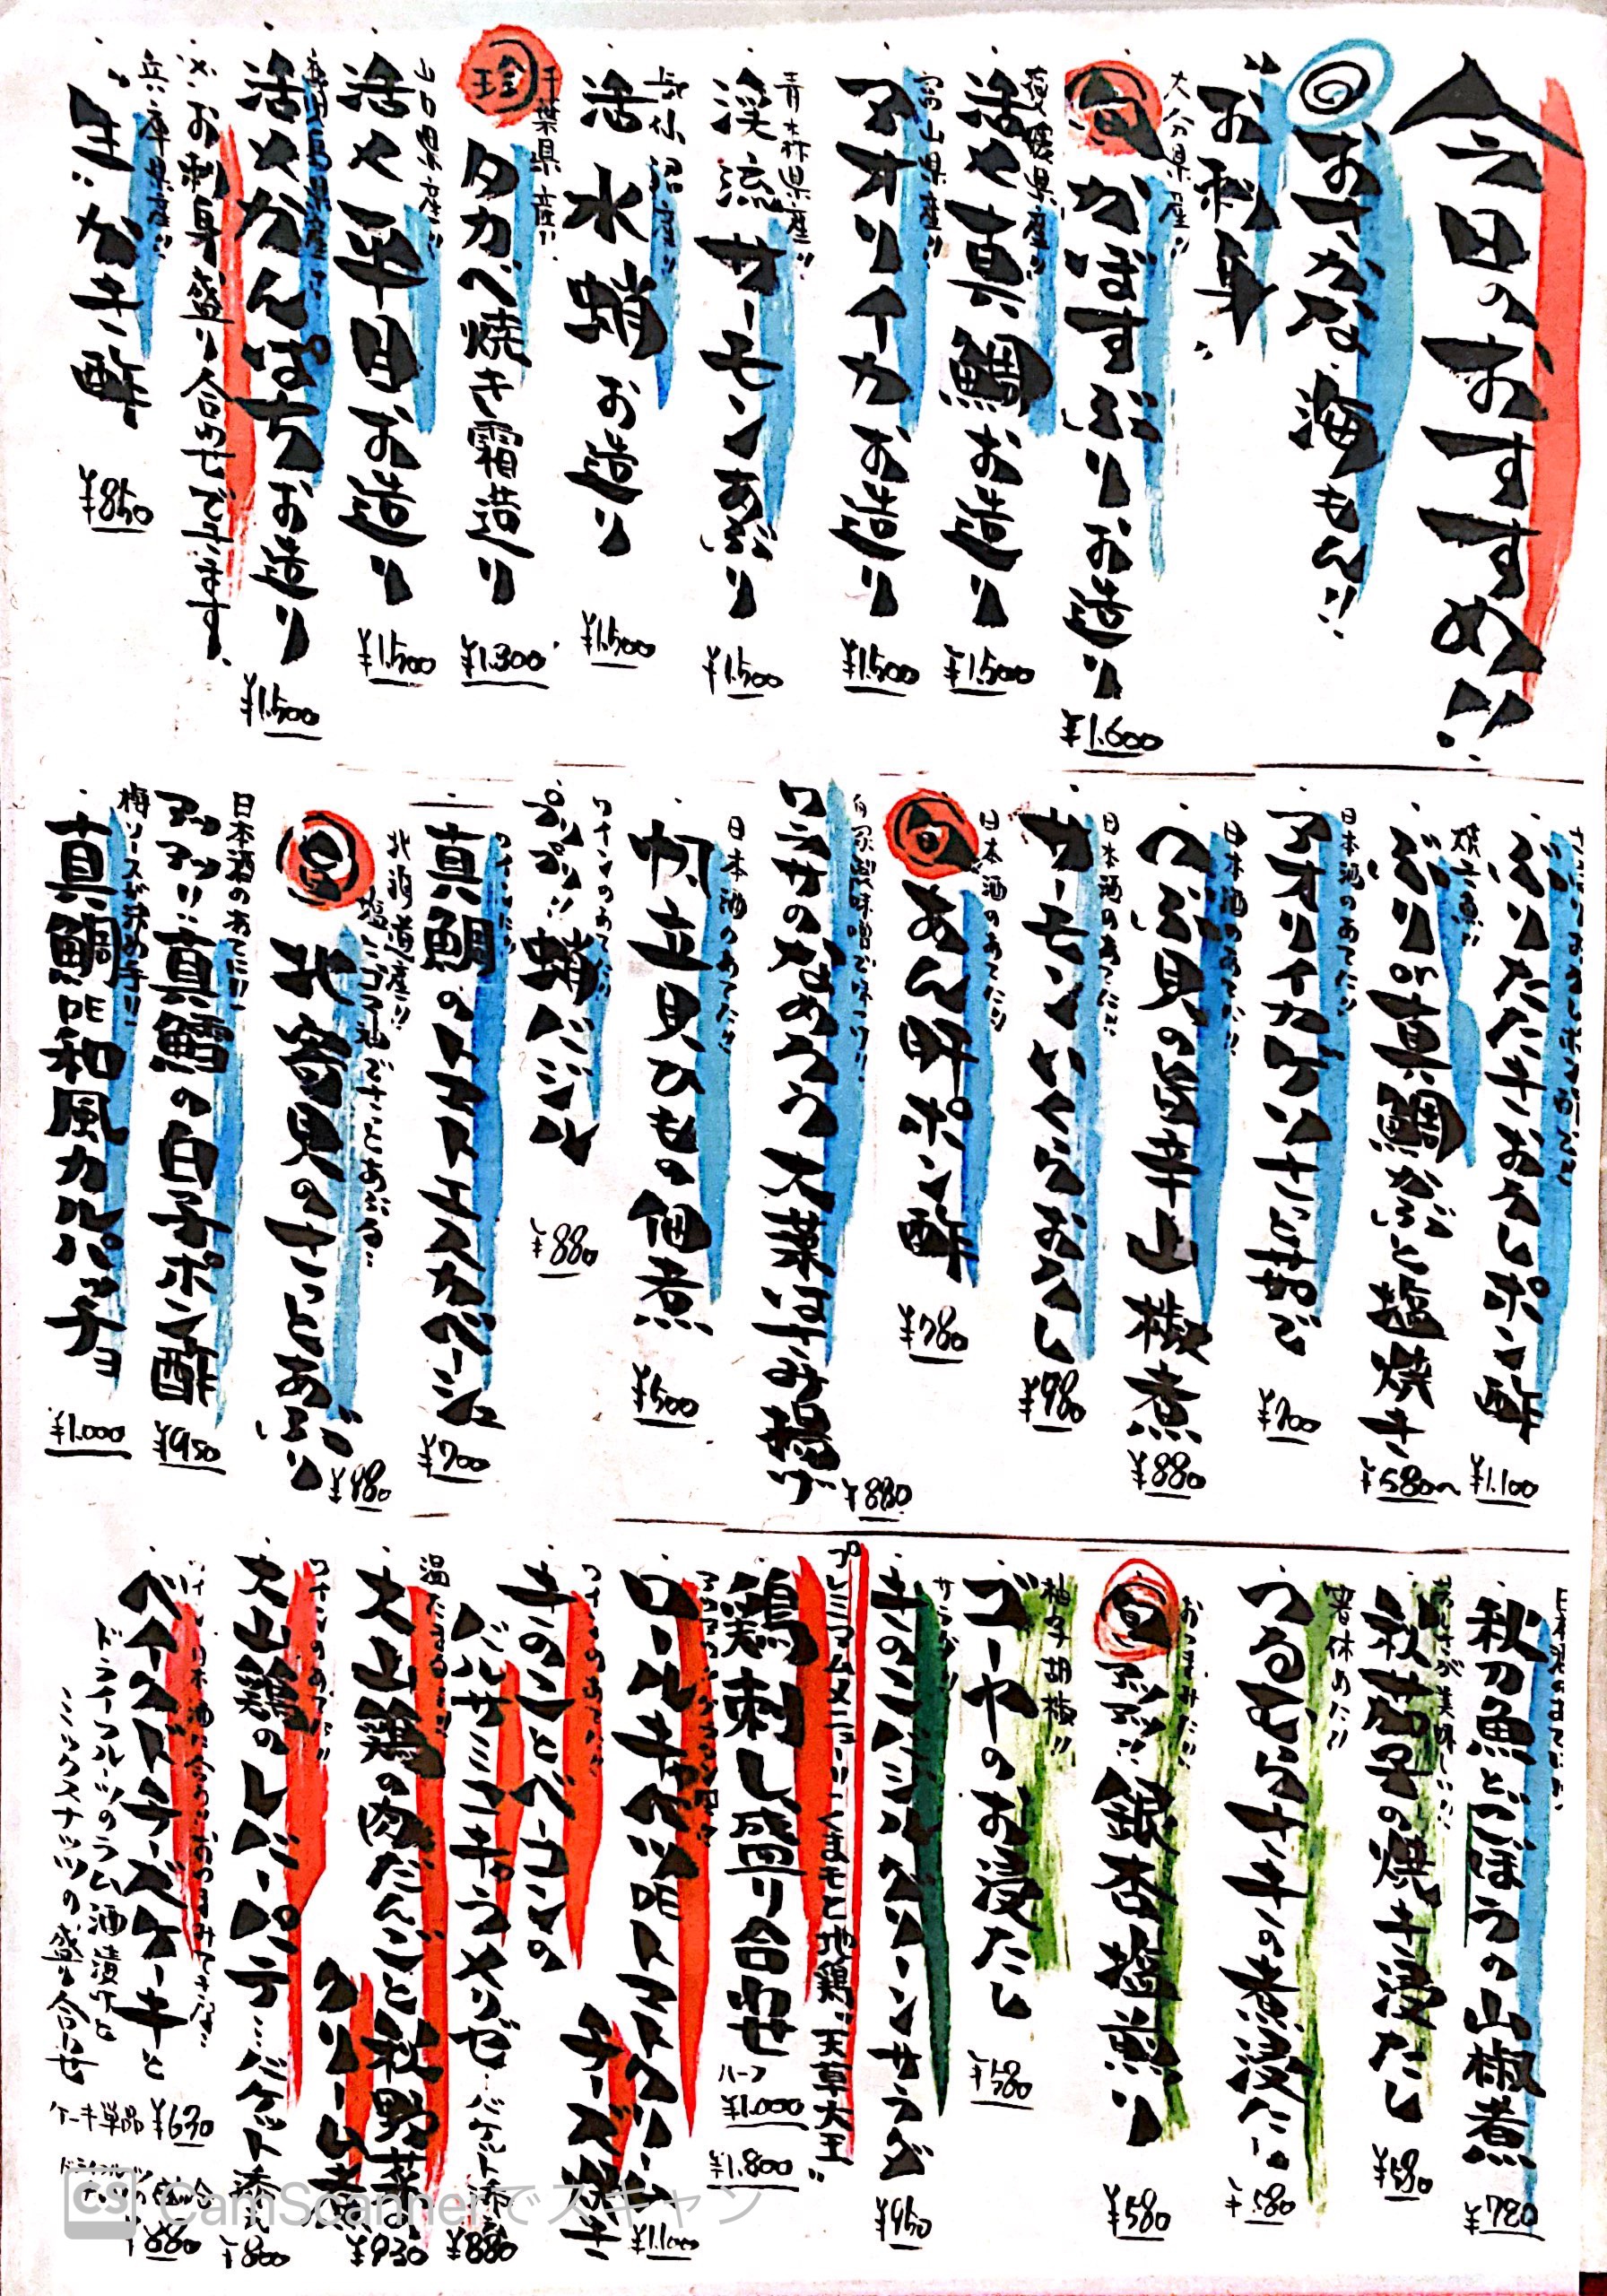 今日のおすすめ!!
おさかな海もん!!
お刺身
大分県産!!
旬
かぼすぶりお造り
¥1.600
愛媛県産!!
活〆真鯛お造り
¥1.500
富山県産!!
アオリイカお造り
¥1.500
青森県産!!
渓流サーモンあぶり
¥1.500
活水蛸お造り
¥1.500
千葉県産!!
珍
タカベ焼き霜造り
¥1.300
山口県産!!
活〆平目お造り
¥1.500
活〆かんぱちお造り
¥1.500
※お刺身盛り合わせできます
兵庫県産!!
生がき酢
¥850
ぶりたたきおろしポン酢
¥1.100
焼き魚!!
ぶりor真鯛かぶと塩焼き
¥580〜
日本酒のあてに!!
アオリイカゲソさっと茹で
¥700
日本酒のあてに!!
つぶ貝の旨辛山椒煮
¥880
日本酒のあてに!!
サーモンいくらおろし
¥980
日本酒のあてに!!
旬
あん肝ポン酢
¥780
自家製味噌で味つけ!!
ワラサのなめろう大葉はさみ揚げ
¥880
日本酒のあてに!!
帆立貝ひもの佃煮
¥500
ワインのあてに!!
プリップリ!!蛸バジル
¥880
真鯛のトマトエスカベーシュ
¥700
北海道産!!
塩とゴマ油でさっとあぶる!!
旬
北寄貝のさっとあぶり
¥980
日本酒のあてに!!
アッツアツ!!真鱈の白子ポン酢
¥950
梅ソースが決め手!!
真鯛昆和風カルパッチョ
¥1.000
秋刀魚とごぼうの山椒煮
¥780
秋茄子の焼き浸たし
¥580
箸休めに!!
つるむらさきの煮浸たし
¥580
おつまみに!!
旬
アツアツ銀杏塩煎り
¥580
柚子胡椒!!
ゴーヤのお浸たし
¥580
サラダ!!
きのこバジルグリーンサラダ
¥950
プレミアムメニュー!!くまモと地鶏、天草大王!!
鶏刺し盛り合わせ
ハーフ
¥1.000
¥1.800
ロールキャベツ昆トマトクリーム
¥1.100
ワインのあてに!!
きのことベーコンの
チーズ焼き
バルサミコキャラメリゼ…バケット添え
¥880
温たまる!!
大山鶏の肉だんごと秋野菜
クリーム煮
¥930
ワインのあてに!!
大山鶏のレバーパテ…バケット添え
¥800
ベイクスドチーズケーキと
ドライフルーツのラム酒漬けと
ミックスナッツの盛り合わせ
ケーキ単品 ¥630
¥880
CS CamScannerでスキャン